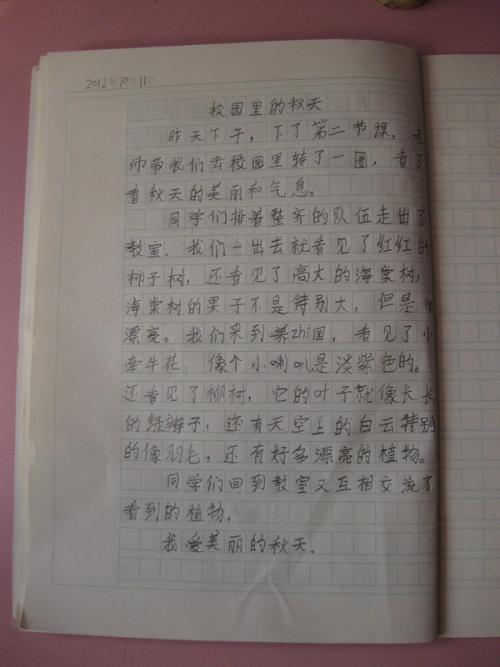 2012年10月11日
校园里的秋天
昨天下午，下了第二节课，老
师带我们去校园里转了一圈，看了
看秋天的美丽和气息。
同学们排着整齐的队伍走出了
教室．我们一出去就看见了红红的
柿子树，还看见了高大的海棠树，
海棠树的果子不是特别大，但是
漂亮。我们来到养zhi园，看见了小
牵牛花．像个小喇叭是淡紫色的。
还看见了柳树，它的叶子就像长长
的绿辫子，还有天空上的白云特别
的像羽毛，还有好多漂亮的植物。
同学们回到教室又互相交流了
看到的植物。
我爱美丽的秋天。